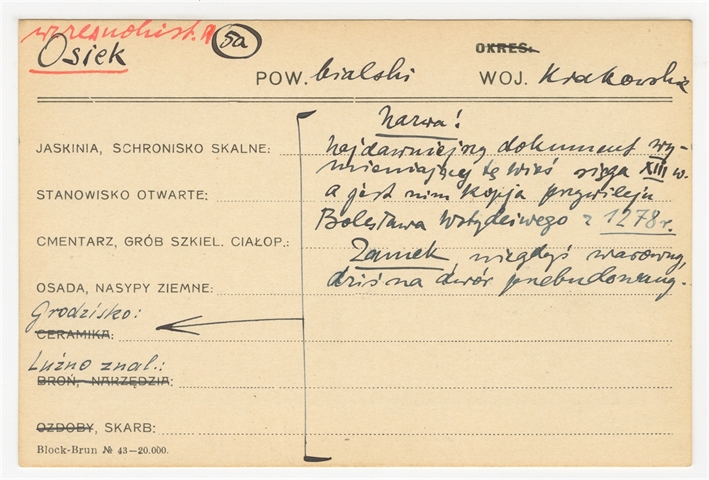 wczesnohist. A
Osiek
5a
OKRES:
POW. bialski WOJ. Krakowskie
Nazwa:
JASKINIA, SCHRONISKO SKALNE: najdawniejszy dokument wy-
mieniającej tę wieś sięga XIII w.
STANOWISKO OTWARTE: a jest nim kopja przywileju
Bolesława Wstydliwego z 1278 r.
CMENTARZ, GRÓB SZKIEL. CIAŁOP.: Zamek, niegdyś warowny,
OSADA, NASYPY ZIEMNE: dziś na dwór przebudowany.
Grodzisko:
CERAMIKA:
Luźno znal.:
BROŃ, NARZĘDZIA:
OZDOBY, SKARB:
Block-Brun № 43—20.000.